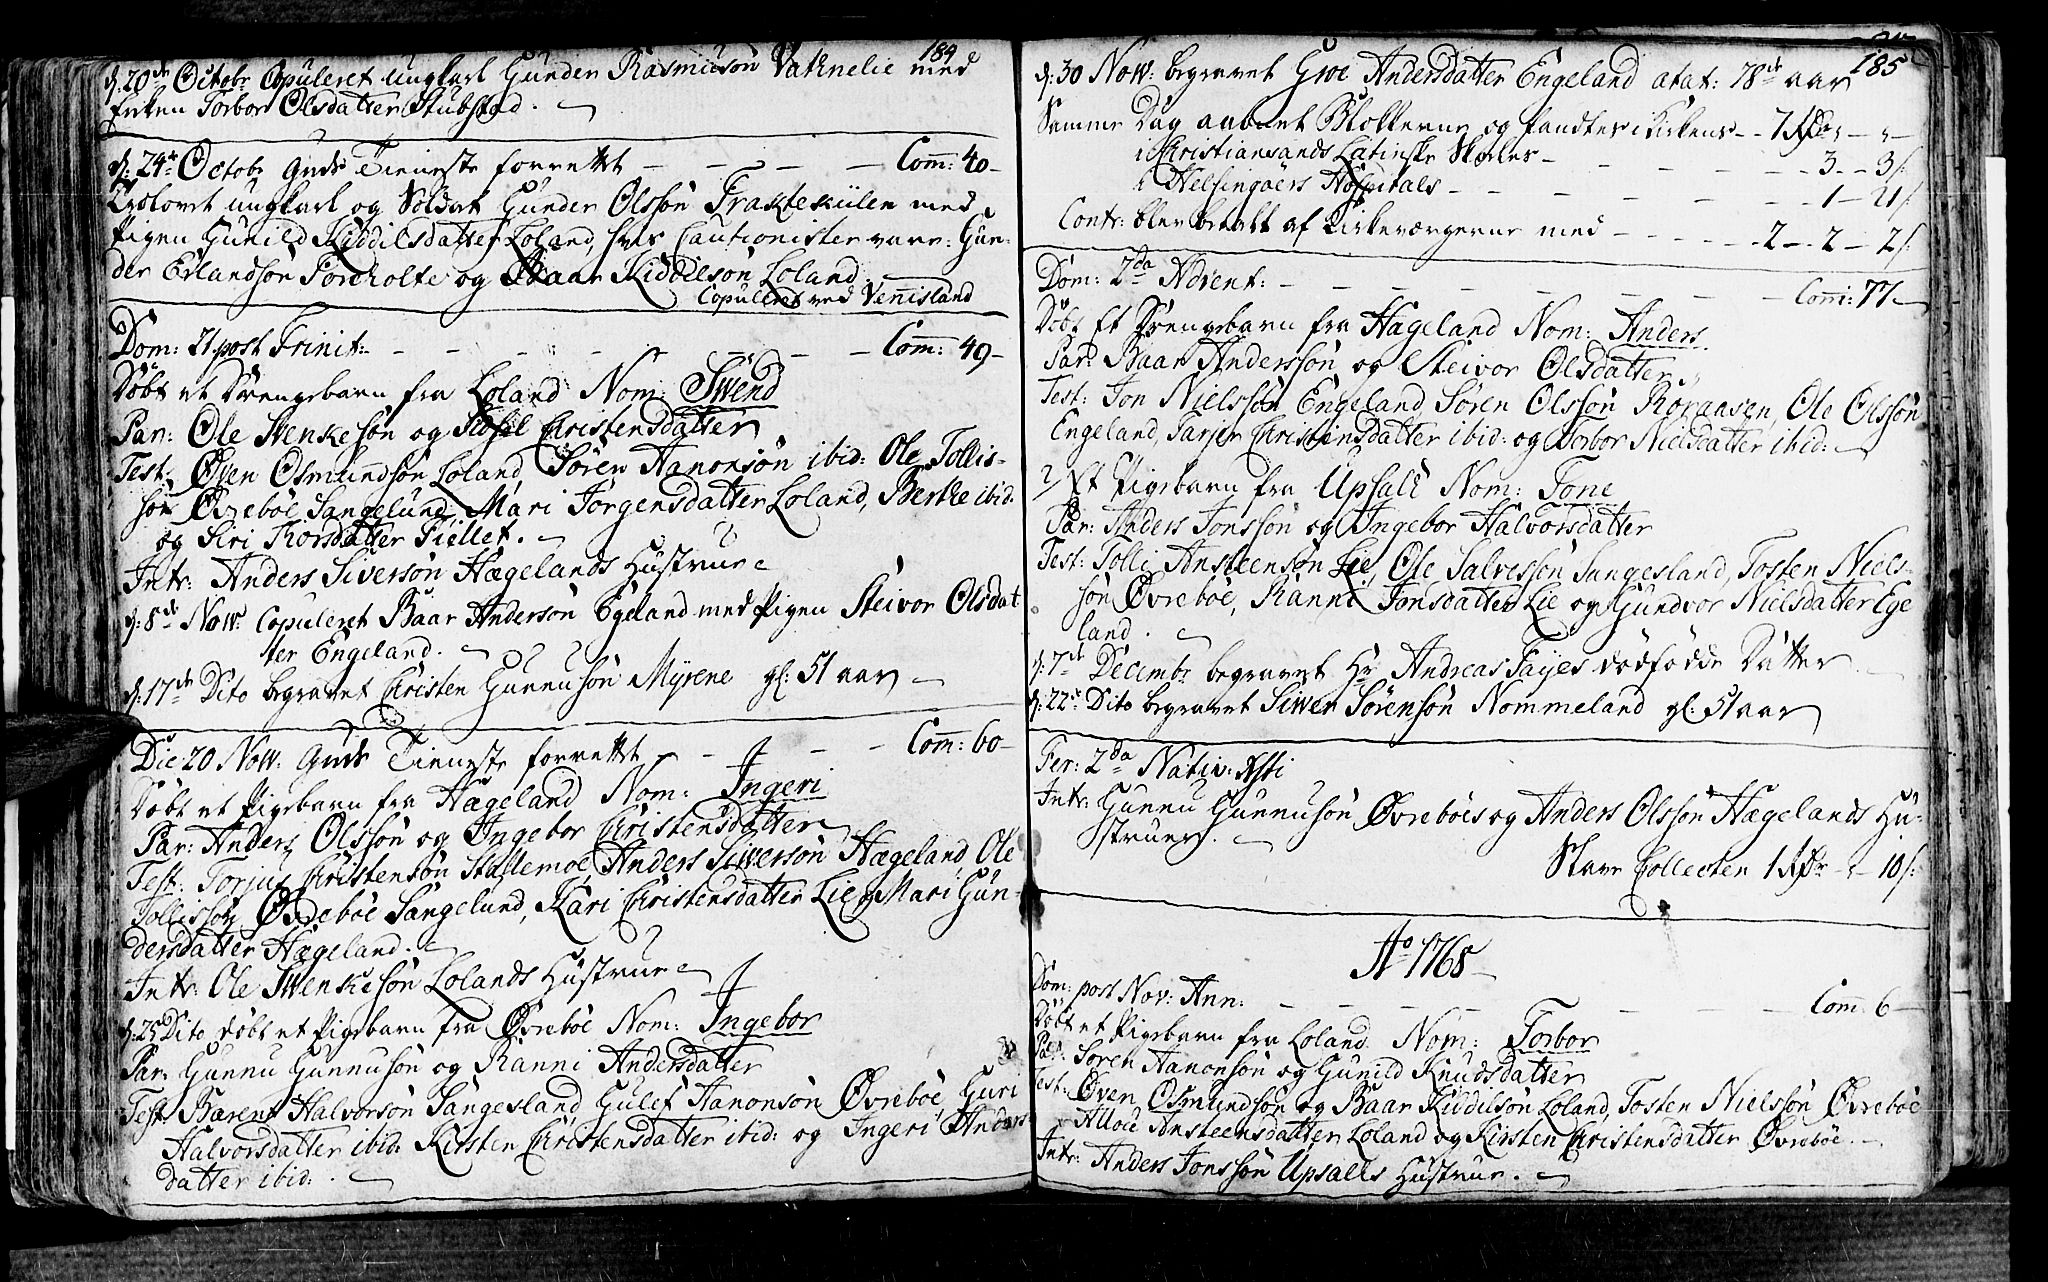 184
d: 20de Octobr Copuleret ungkarl Gunder Rasmusøn Vatnelie med
Pirken Torbor Olsdatter Stubstad.
d: 24de Octobr Guds Tieneste forrettet — — — — Com: 40 —
Trolovet ungkarl og Soldat Gunder Olssøn Fraktekiilen med
Pigen Gunild Kiddilsdatter Loland, hvis Cautionister vare: Gun-
der Erlandsøn Fordholte og Baar Kiddelsøn Loland
Copuleret ved Vennisland
Dom: 21 post Trinit: — — — — — — Com: 49 —
Døbt et Drengebarn fra Loland Nom: Swend
Par: Ole Svenkesøn og Sidsil Christensdatter
Test: Øven Osmundsøn Loland, Søren Aanonsøn ibid: Ole Tollis-
søn Øvrebøe Sangelund, Mari Jørgensdatter Loland, Berthe ibid:
og Siri Thorsdatter Fiellet.
Intr: Anders Siversøn Hægelands Hustrue
d: 8de Nov: Copuleret Baar Andersøn Egeland med Pigen Steivor Olsdat
ter Engeland.
d: 17de Dito begravet Christen Gunnusøn Myrene gl: 51 aar
Die 20 Nov: Guds Tieneste forrettet — — — — Com: 60 —
Døbt et Pigebarn fra Hægeland Nom: Ingeri
Par: Anders Olssøn og Ingebor Christensdatter
Test: Torjus Christensøn Stallemoe, Anders Siversøn Hægeland, Ole
Tollissøn Øvrebøe Sangelund, Kari Christensdatter Lie, Mari Gun-
dersdatter Hægeland.
Intr: Ole Swenkesøn Lolands Hustrue
d: 25 Dito døbt et Pigebarn fra Øvrebøe Nom: Ingebor
Par: Gunnu Gunnusøn og Ranni Andersdatter
Test: Barent Halvorsøn Sangesland, Gulef Aanonsøn Øvrebøe, Guri
Halvorsdatter ibid: Kirsten Christensdatter ibid: og Ingeri Anders
datter ibid:
185
d: 30 Nov: begravet Groe Andersdatter Engeland ætat: 78 aar
Samme Dag aabnet Blokkerne og fandtes i Kirkens — 7 Rdr — " —
i Christiansands Latinske Skoles — — — 3 — 3 s:
i Helsingøers Hospitals — — — 1 — 21 s:
Contr: blev betalt af Kirkeværgerne med — — — 2 — 2 — 2 s:
Dom: 2da Advent: — — — — — — Com: 77 —
Døbt Et Drengebarn fra Hægeland Nom: Anders
Par: Baar Anderssøn og Steivor Olsdatter
Test: Jon Nielssøn Engeland, Søren Olssøn Roransen, Ole Olssøn
Engeland, Tarjer Christensdatter ibid: og Torbor Nielsdatter ibid:
2/ Et Pigebarn fra Upsall Nom: Tone
Par: Anders Jonssøn og Ingebor Halvorsdatter
Test: Tolli Ansteensøn Lie, Ole Salvessøn Sangesland, Tosten Niels-
søn Øvrebøe, Ranni Jonsdatter Lie og Gundvor Nielsdatter Ege
land.
d: 7de Decembr begravet Hr Andreas Fayes dødfødde Datter
d: 22de Dito begravet Siwer Sørensøn Nommeland gl: 51 aar
Fer: 2da Nativ: Xsti
Intr: Gunnu Gunnusøn Øvrebøes og Anders Olssøn Hægelands Hu-
struer.
Slave Collecten 1 Rdr — " — 10 s:
Ao 1768
Dom: post Nov: Ann: — — — — — Com: 6 —
Døbt et Pigebarn fra Loland Nom: Torbor
Par: Søren Aanonsøn og Gunild Knudsdatter
Test: Øven Osmundsøn og Baar Kiddilsøn Loland, Tosten Nielssøn Øvrebøe
Alloe Ansteensdatter Loland og Kirsten Christensdatter Øvrebøe.
Intr: Anders Jonssøn Upsalls Hustrue.